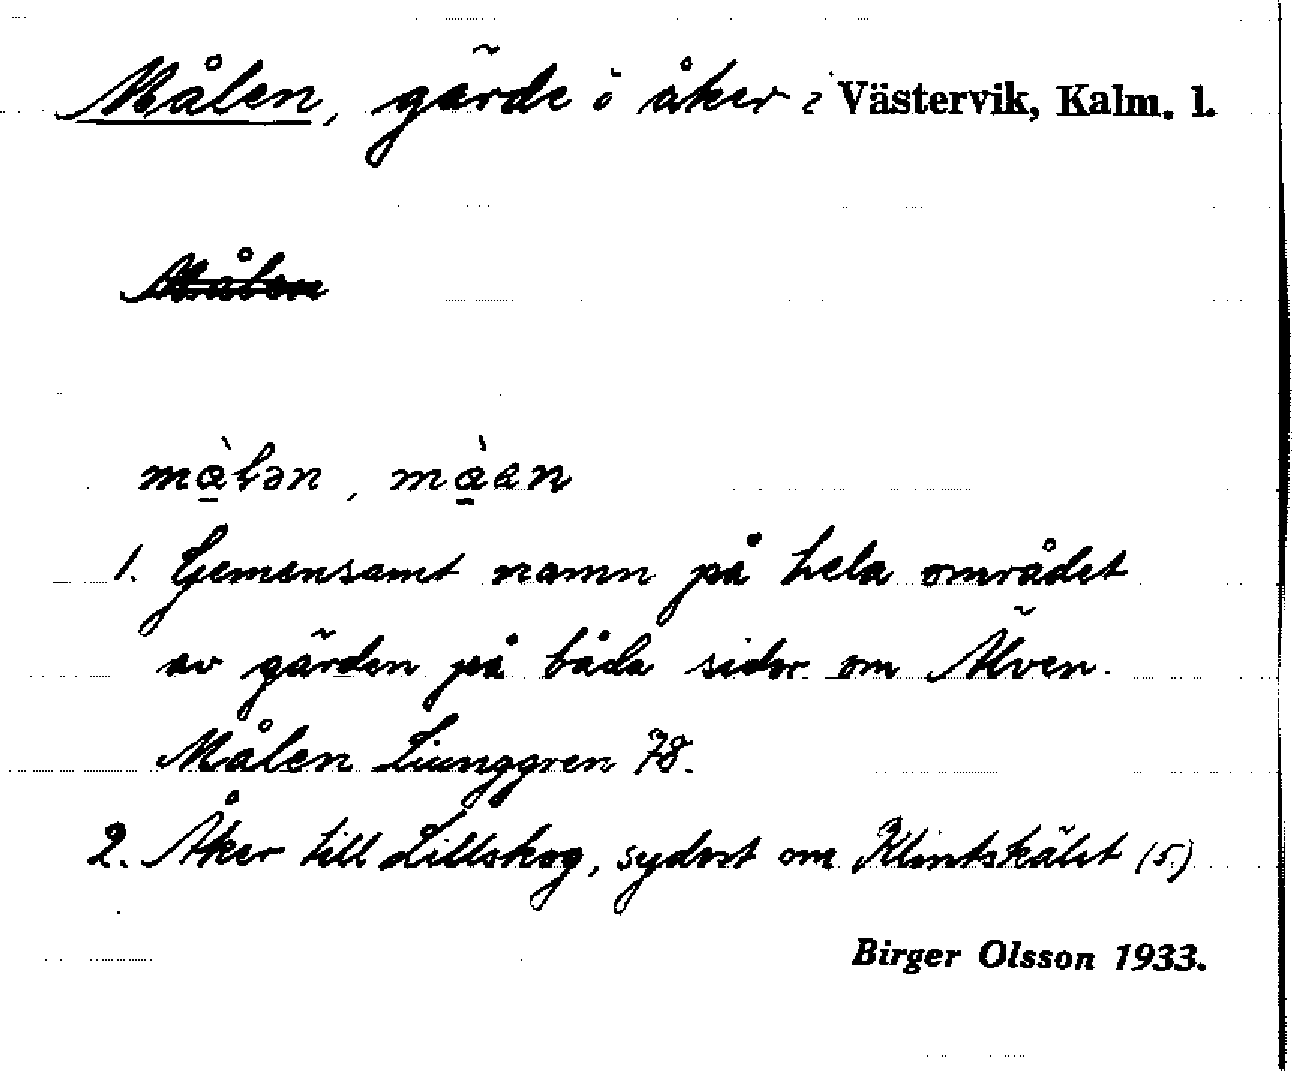 Målen, gärde i åker i Västervik, Kalm. l.
Målen
mὰ̱lən, mὰ̱an
1. Gemensamt namn på hela området
av gärden på båda sidor om Älven.
Målen Liunggren 78.
2. Åker till Lillskog, sydost om Klintskälet (5)
Birger Olsson 1933.